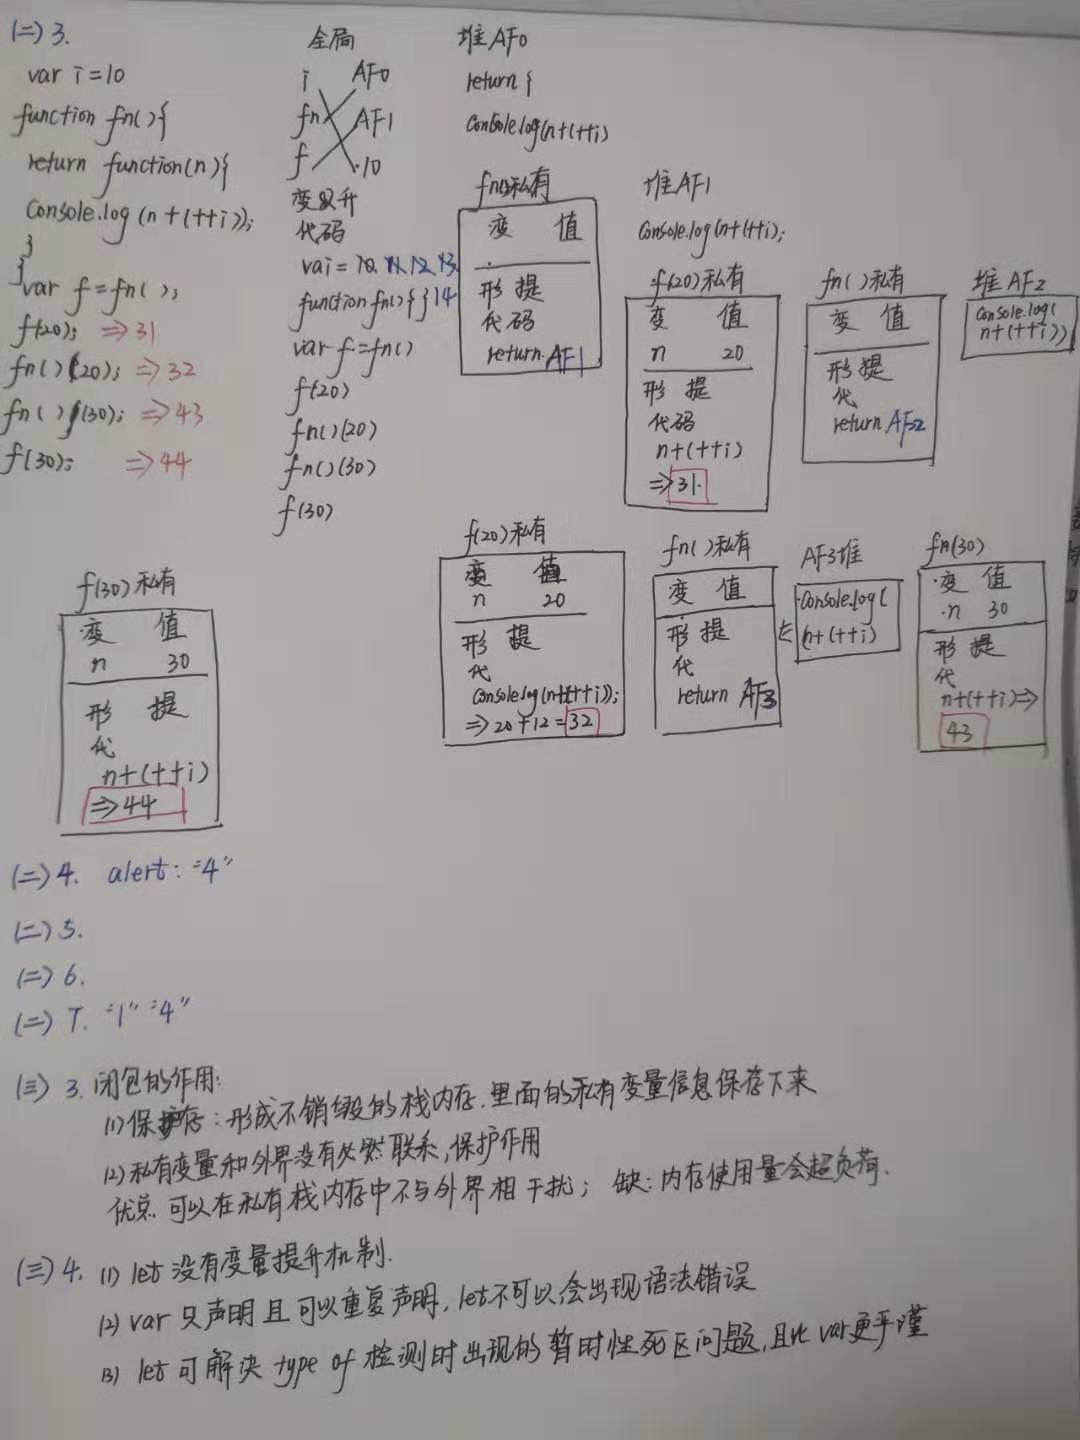 (二) 3.
var i = 10
function fn() {
return function(n) {
Console.log (n + (++i));
}
}
var f = fn();
f(20); => 31
fn()(20); => 32
fn()(30); => 43
f(30); => 44
全局
i AF0
fn AF1
f 10
变 升
代码
vai = 10, 11, 12, 13
function fn() { } 14
var f = fn()
f(20)
fn()(20)
fn()(30)
f(30)
堆 AF0
return {
Console.log(n+(++i)
fn()私有
变 值
形 提
代码
return AF1
堆 AF1
Console.log(n+(++i);
f(20)私有
变 值
n 20
形 提
代码
n+(++i)
=> 31
fn()私有
变 值
形 提
代
return AF2
堆 AF2
Console.log(
n+(++i))
f(30)私有
变 值
n 30
形 提
代
n+(++i)
=> 44
f(20)私有
变 值
n 20
形 提
代
Console.log(n+(++i));
=> 20+12=32
fn()私有
变 值
形 提
代
return AF3
AF3 堆
Console.log(
n+(++i)
fn(30)
变 值
n 30
形 提
代
n+(++i) =>
43
(二) 4. alert: "4"
(二) 5.
(二) 6.
(二) 7. "1" "4"
(三) 3. 闭包的作用:
(1) 保存: 形成不销毁的栈内存, 里面的私有变量信息保存下来
(2) 私有变量和外界没有必然联系, 保护作用
优点 可以在私有栈内存中不与外界相干扰; 缺: 内存使用量会超负荷.
(三) 4. (1) let 没有变量提升机制.
(2) var 只声明且可以重复声明, let不可以会出现语法错误
(3) let 可解决 type of 检测时出现的暂时性死区问题, 且比 var更严谨